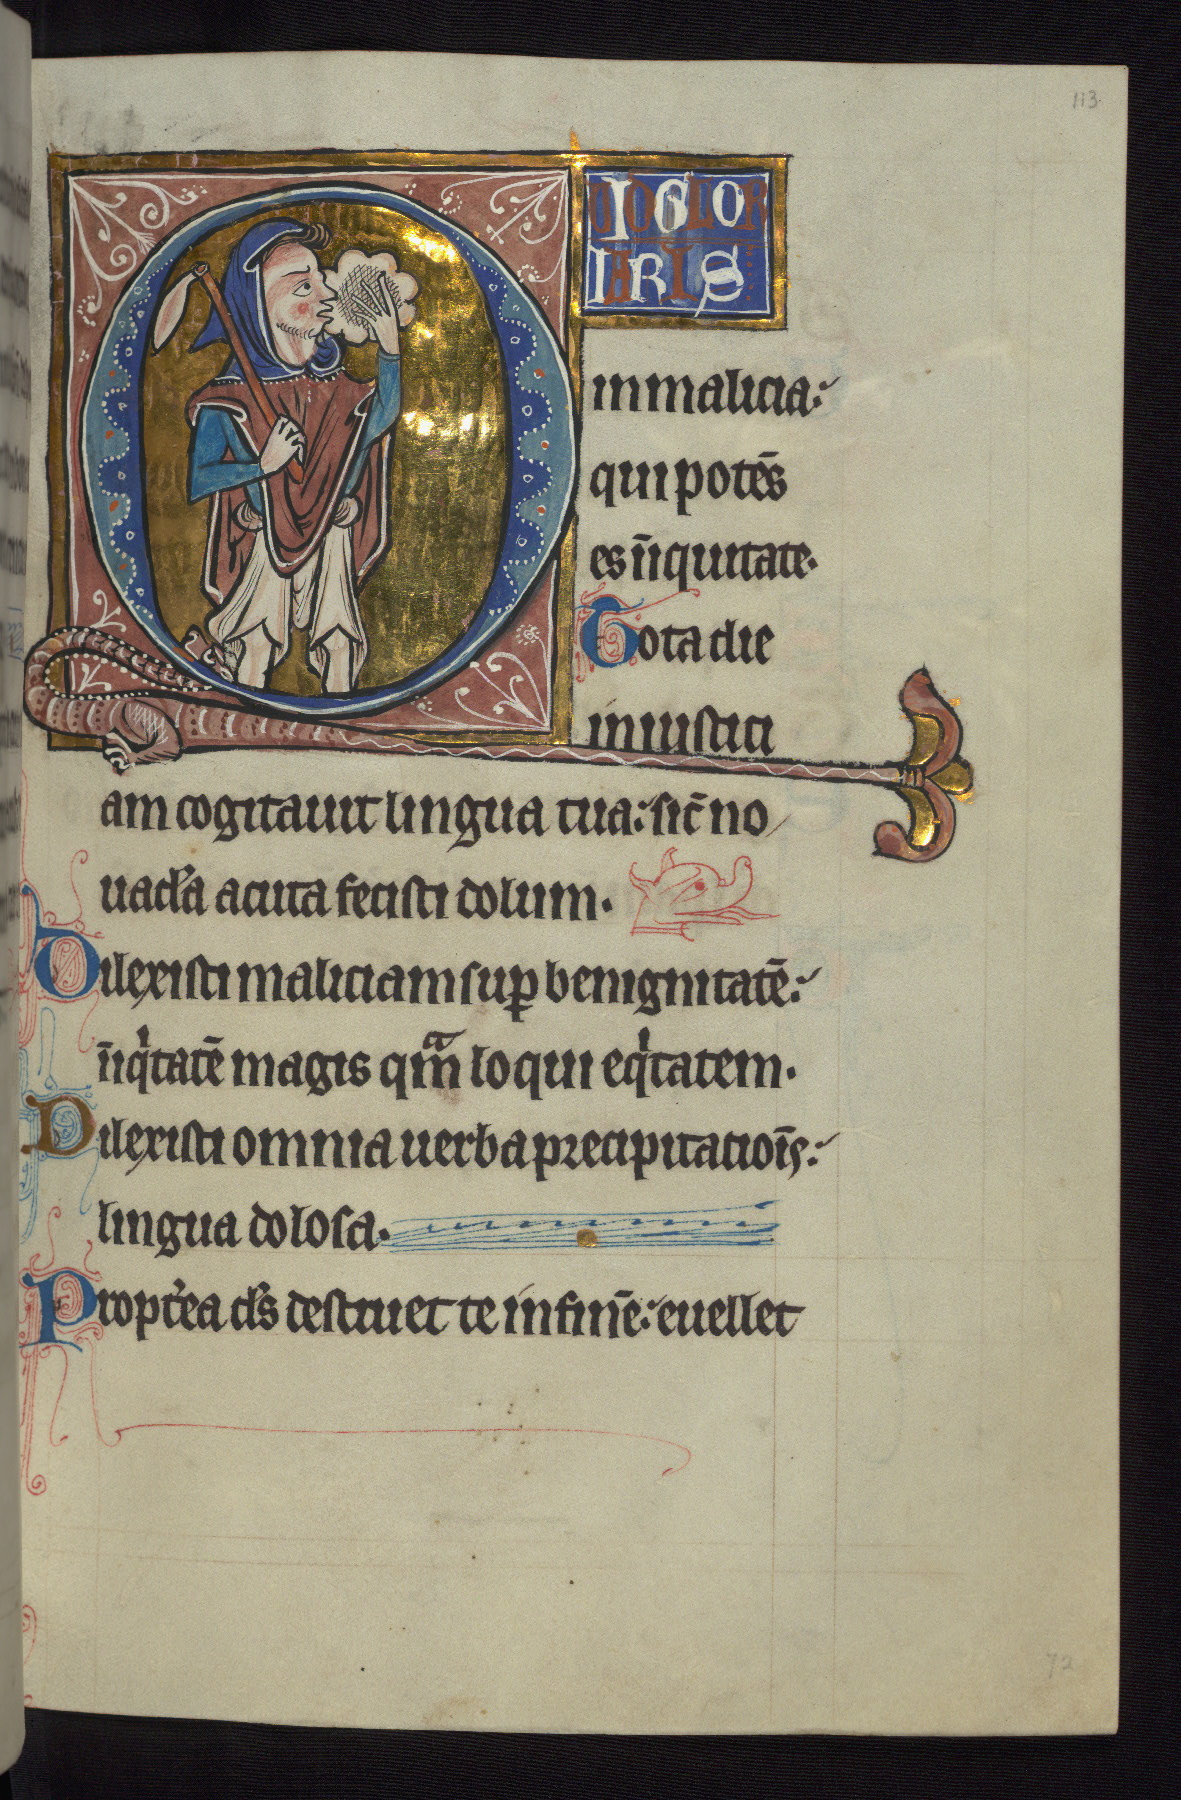 113.
Q UID GLOR
IARIS
in malicia:
qui potēs
es īiquitate.
Tota die
iniusticı
am cogitauit lingua tua: sic̄ no
uacl̓a acuta fecisti dolum.
Dilexisti maliciam suꝑ benignitatē:
īiqͥtatē magis qᵃm̄ loqui eqͥtatem.
Dilexisti omnia uerba precipitatiōıs:
lingua dolosa.
Propt̓ea d̓s destruet te in finē: euellet
72